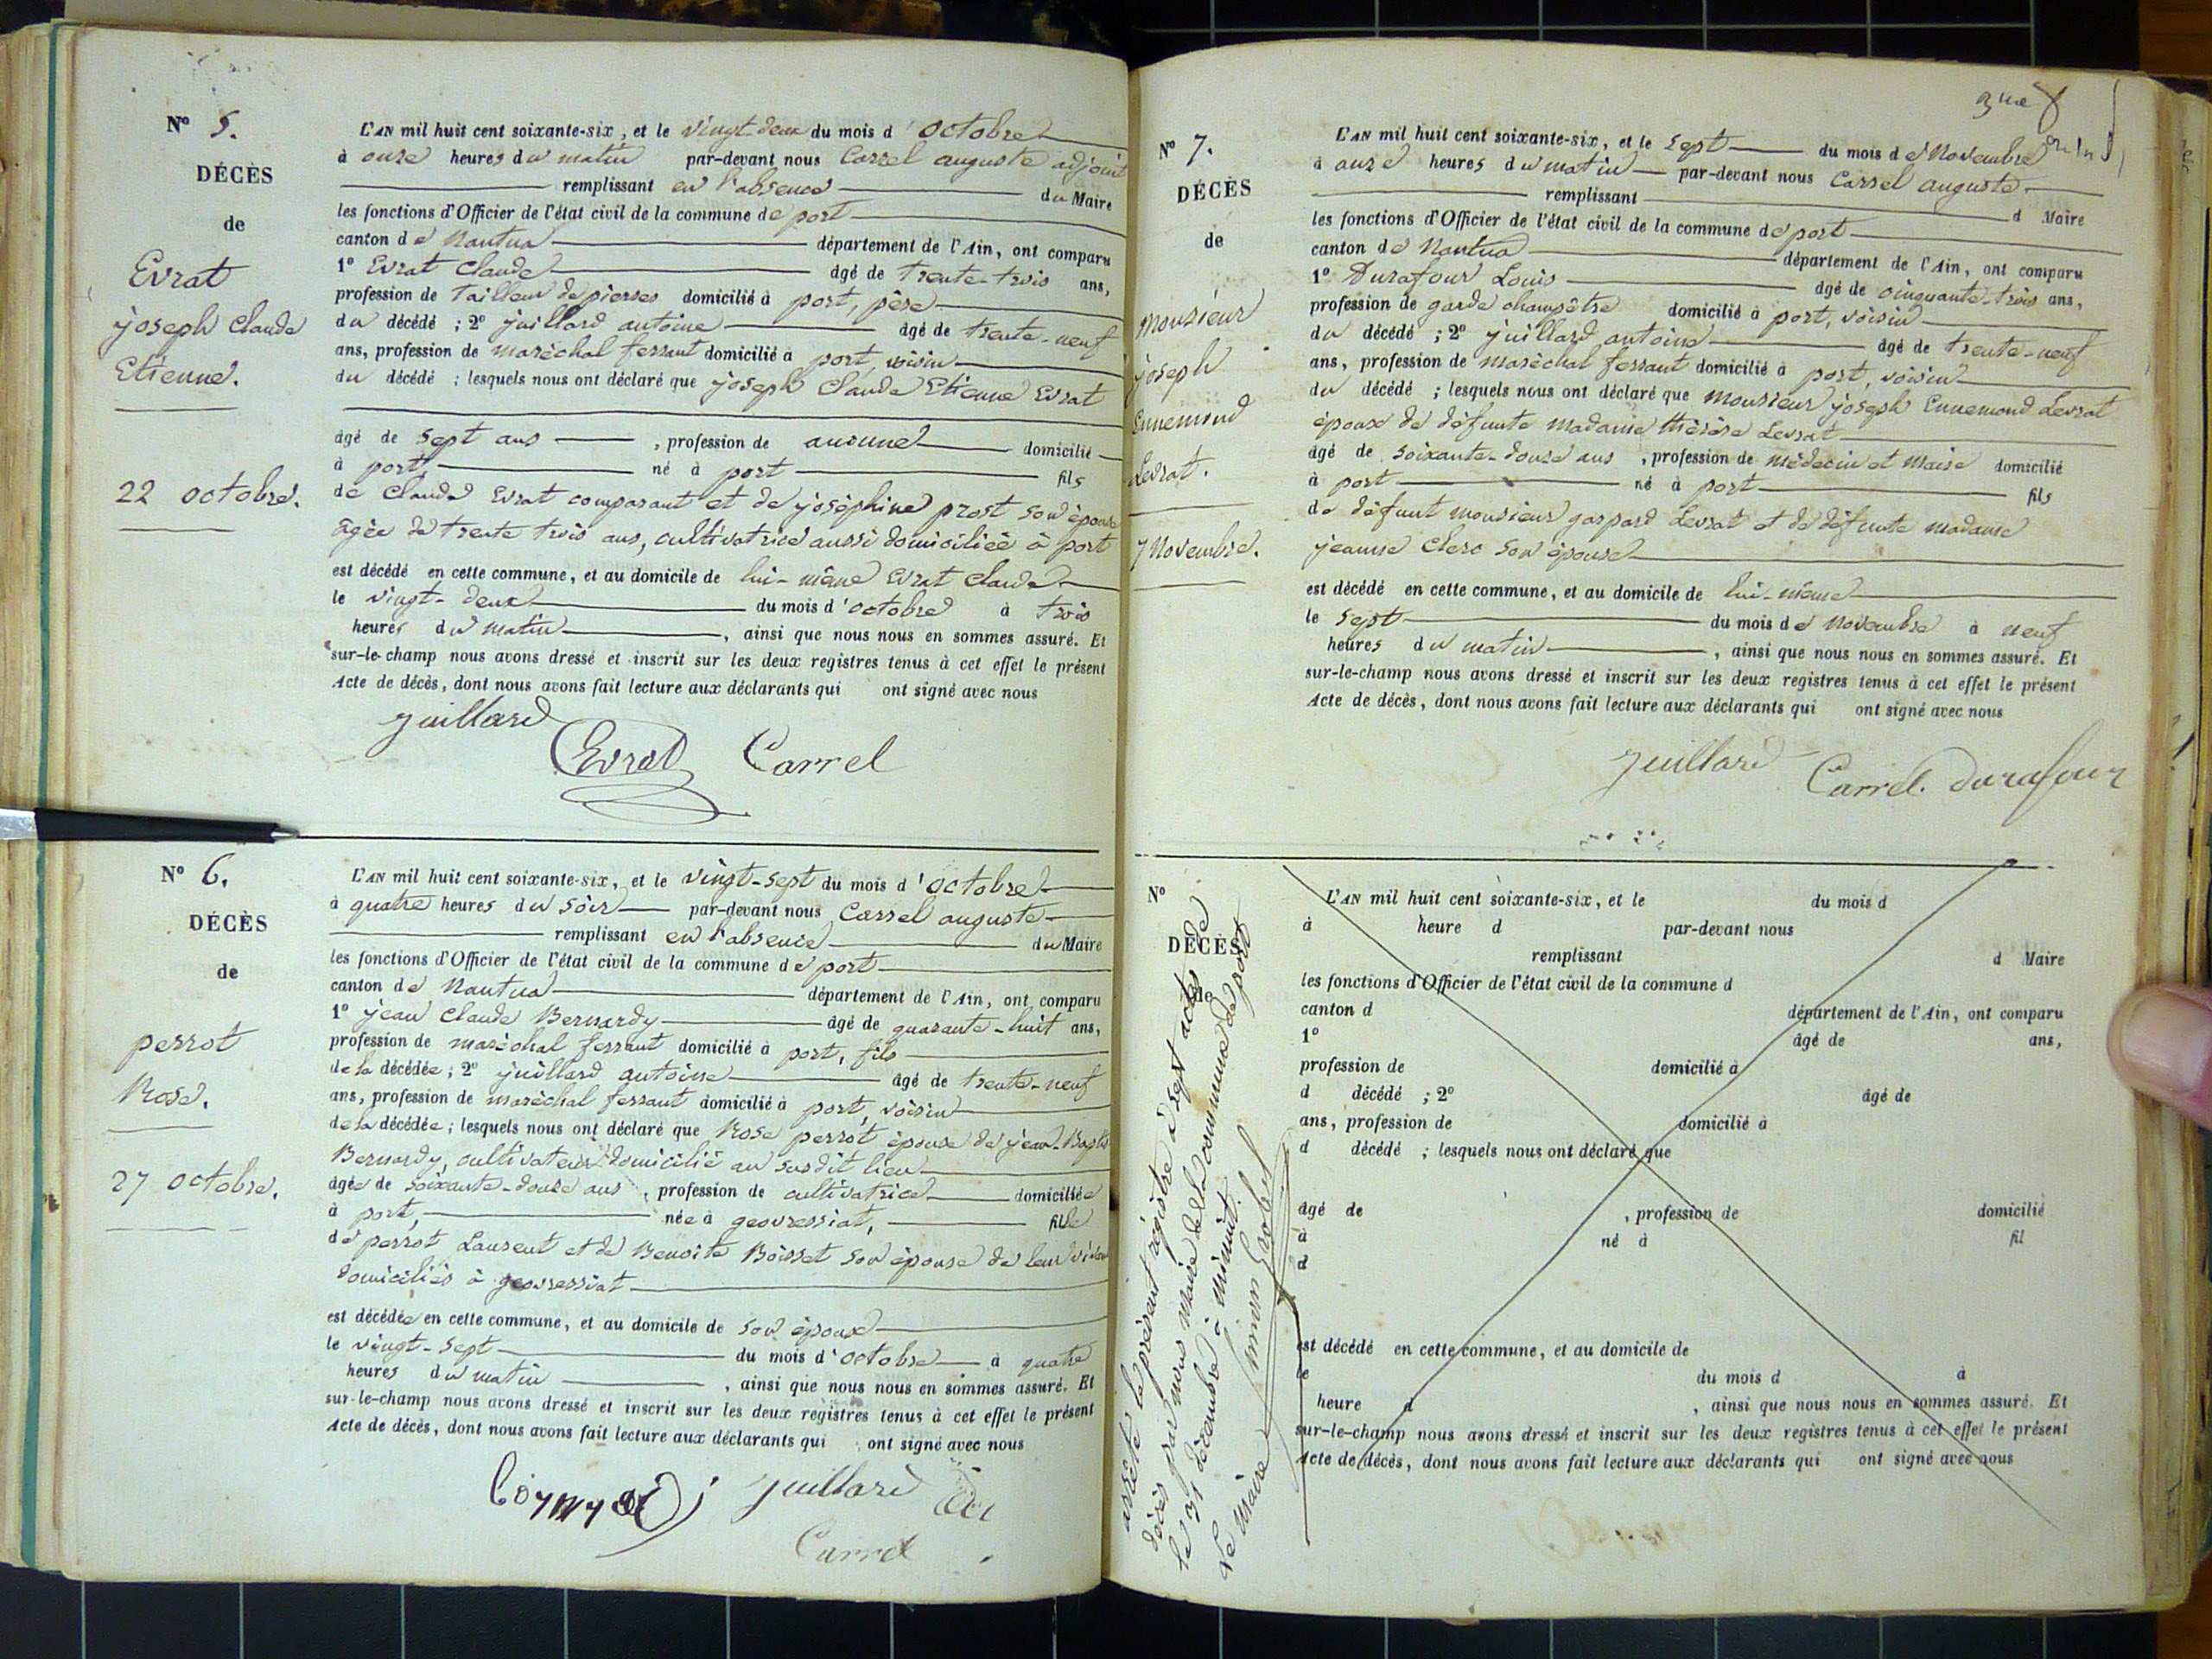 N° 5.
DÉCÈS
de
Evrat
joseph Claude
Etienne.
22 octobre.
L'AN mil huit cent soixante-six, et le vingt-deux du mois d'octobre
à onze heures du matin par-devant nous Carrel auguste adjoint
remplissant en l'absence du Maire
les fonctions d'Officier de l'état civil de la commune de port
canton de Nantua département de l'Ain, ont comparu
1° Evrat Claude âgé de trente-trois ans,
profession de Tailleur de pierres domicilié à port, père
du décédé ; 2° juillard antoine âgé de trente-neuf
ans, profession de maréchal ferrant domicilié à port, voisin
du décédé ; lesquels nous ont déclaré que joseph Claude Etienne Evrat
âgé de sept ans , profession de aucune domicilié
à port, né à port fils
de Claude Evrat comparant et de joséphine prost son épouse
âgée de trente trois ans, cultivatrice aussi domiciliée à port
est décédé en cette commune, et au domicile de lui-même Evrat Claude
le vingt-deux du mois d'octobre à trois
heures du matin , ainsi que nous nous en sommes assuré. Et
sur-le-champ nous avons dressé et inscrit sur les deux registres tenus à cet effet le présent
Acte de décès, dont nous avons fait lecture aux déclarants qui ont signé avec nous
juillard
Evrat Carrel
N° 6.
DÉCÈS
de
perrot
Rose.
27 octobre.
L'AN mil huit cent soixante-six, et le vingt-sept du mois d'octobre
à quatre heures du soir par-devant nous Carrel auguste
remplissant en l'absence du Maire
les fonctions d'Officier de l'état civil de la commune de port
canton de Nantua département de l'Ain, ont comparu
1° jean Claude Bernardy âgé de quarante-huit ans,
profession de maréchal ferrant domicilié à port, fils
de la décédée ; 2° juillard antoine âgé de trente-neuf
ans, profession de maréchal ferrant domicilié à port, voisin
de la décédée ; lesquels nous ont déclaré que Rose perrot épouse de jean-Bapte
Bernardy, cultivateur domicilié au susdit lieu
âgée de soixante-douze ans , profession de cultivatrice domiciliée
à port, née à geovressiat, fille
de perrot Laurent et de Benoite Boisset son épouse de leur vivant
domiciliés à geovressiat
est décédée en cette commune, et au domicile de son époux
le vingt-sept du mois d'octobre à quatre
heures du matin , ainsi que nous nous en sommes assuré. Et
sur-le-champ nous avons dressé et inscrit sur les deux registres tenus à cet effet le présent
Acte de décès, dont nous avons fait lecture aux déclarants qui ont signé avec nous
juillard
Carrel
3me
N° 7.
DÉCÈS
de
monsieur
joseph
Ennemond
Levrat.
7 Novembre.
L'AN mil huit cent soixante-six, et le sept du mois de Novembre
à onze heures du matin par-devant nous Carrel auguste
remplissant d Maire
les fonctions d'Officier de l'état civil de la commune de port
canton de Nantua département de l'Ain, ont comparu
1° Durafour Louis âgé de cinquante-trois ans,
profession de garde champêtre domicilié à port, voisin
du décédé ; 2° juillard antoine âgé de trente-neuf
ans, profession de maréchal ferrant domicilié à port, voisin
du décédé ; lesquels nous ont déclaré que monsieur joseph Ennemond Levrat
époux de défunte madame thérèse Levrat
âgé de soixante-douze ans , profession de médecin et maire domicilié
à port né à port fils
de défunt monsieur gaspard Levrat et de défunte madame
jeanne Clerc son épouse
est décédé en cette commune, et au domicile de lui-même
le sept du mois de Novembre à neuf
heures du matin , ainsi que nous nous en sommes assuré. Et
sur-le-champ nous avons dressé et inscrit sur les deux registres tenus à cet effet le présent
Acte de décès, dont nous avons fait lecture aux déclarants qui ont signé avec nous
juillard Carrel. durafour
N°
DÉCÈS
de
arrêté le présent registre à sept actes de
décès par nous maire de la commune de port
le 31 décembre à minuit.
Le maire
L'AN mil huit cent soixante-six, et le du mois d
à heure d par-devant nous
remplissant d Maire
les fonctions d'Officier de l'état civil de la commune d
canton d département de l'Ain, ont comparu
1° âgé de ans,
profession de domicilié à
d décédé ; 2° âgé de
ans, profession de domicilié à
d décédé ; lesquels nous ont déclaré que
âgé de , profession de domicilié
à né à fil
d
est décédé en cette commune, et au domicile de
le du mois d à
heure d , ainsi que nous nous en sommes assuré. Et
sur-le-champ nous avons dressé et inscrit sur les deux registres tenus à cet effet le présent
Acte de décès, dont nous avons fait lecture aux déclarants qui ont signé avec nous